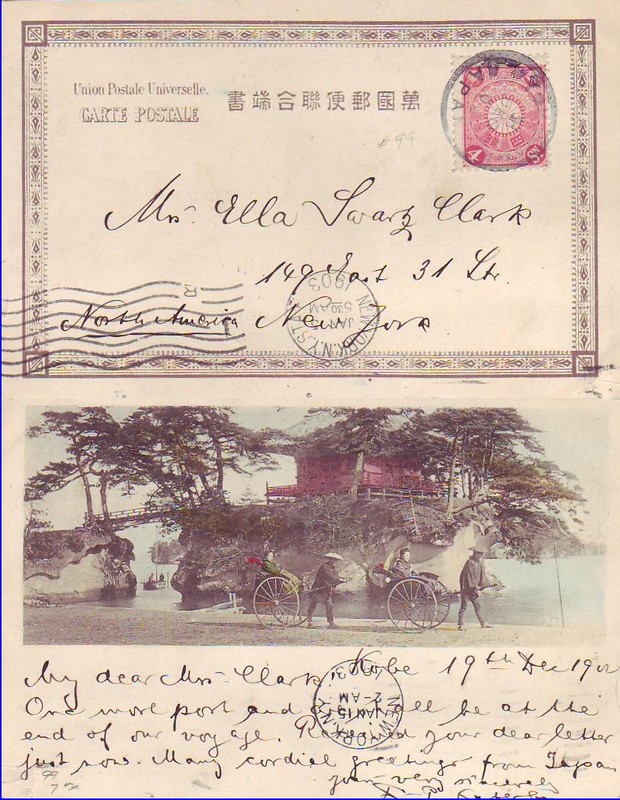 Union Postale Universelle.
CARTE POSTALE
書端合聯便郵國萬
JAPAN
4 Sn
# 99
Mrs. Ella Swartz Clark
149 East 31 Str.
North America New York
NEW YORK, N.Y. STA.
JAN
530 AM
1903
My dear Mrs. Clark, Kobe 19th Dec 1902
One more port and shall be at the
end of our voyage. Received your dear letter
just now. Many cordial greetings from Japan
your very sincerely
NEW YORK, N.Y.
JAN 15
2-AM
1903
99